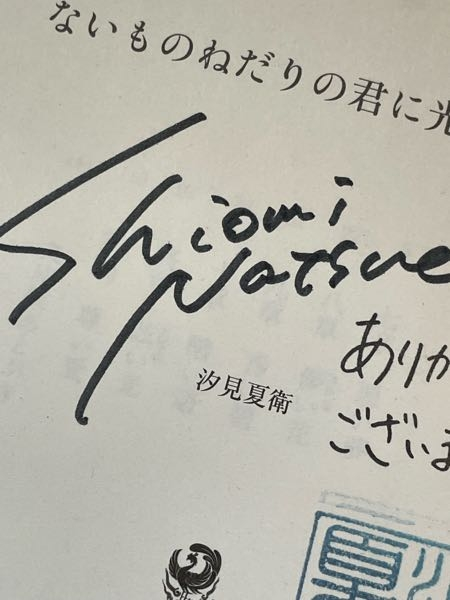 ないものねだりの君に光
Shiomi
Natsue
汐見夏衛
ありか
ございま